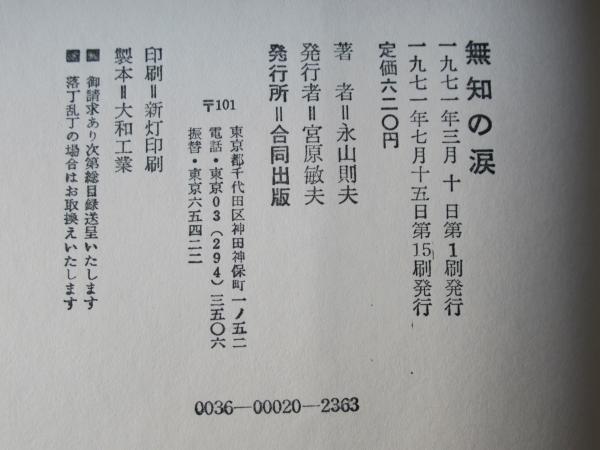 無知の涙
一九七一年三月 十 日第1刷発行
一九七一年七月十五日第15刷発行
定価六二〇円
著 者＝永山則夫
発行者＝宮原敏夫
発行所＝合同出版
〒101
東京都千代田区神田神保町一ノ五二
電話・東京03(294)三五〇六
振替・東京六五四二二
印刷＝新灯印刷
製本＝大和工業
御請求あり次第総目録送呈いたします
落丁乱丁の場合はお取換えいたします
0036—00020—2363